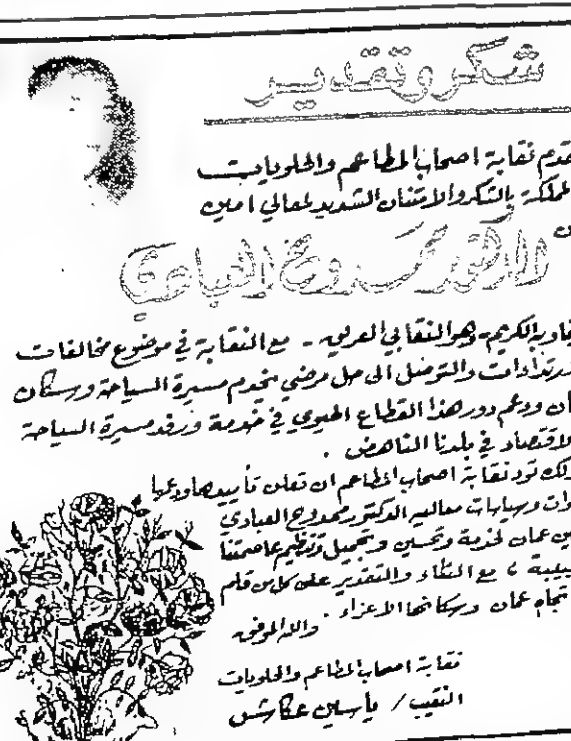 شكر وتقدير
نقابة اصحاب المطاعم والحلويات
بالشكر والامتنان الشديد لمعالي امين
الدكتور ممدوح العبادي
الكريم - وهو النقابي العريق - مع النقابة في موضوع مخالفات
والتوصل الى حل مرضي يخدم مسيرة السياحة وسكان
ودعم دور هذا القطاع الحيوي في خدمة ورفد مسيرة السياحة
في بلدنا الناهض .
تود نقابة اصحاب المطاعم ان تعلن تأييدها ودعمها
وسياسات معاليه الدكتور ممدوح العبادي
عمان لخدمة وتحسين وتجميل وتنظيم عاصمتنا
مع الثناء والتقدير على كل من قلم
تجاه عمان وسكانها الاعزاء .
والله الموفق
نقابة اصحاب المطاعم والحلويات
النقيب / ياسين عكاشة